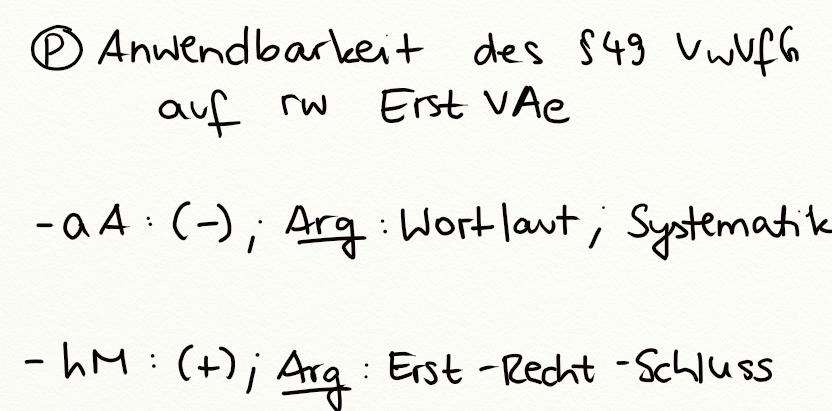 Ⓟ Anwendbarkeit des §49 VwVfG
auf rw Erst VAe
- aA : (-) ; Arg : Wortlaut ; Systematik
- hM : (+) ; Arg : Erst-Recht-Schluss